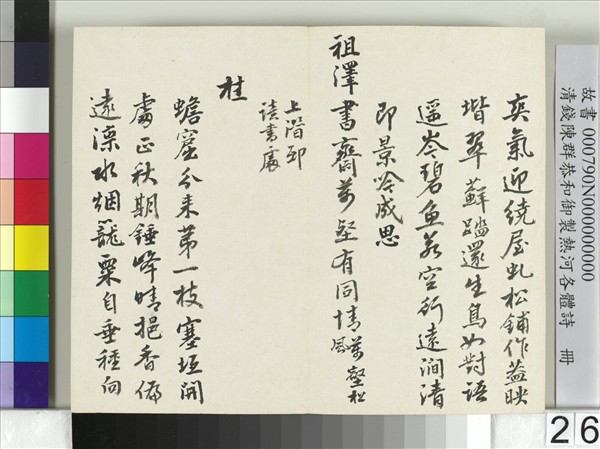 故書 000790N000000000
清錢陳群恭和御製熱河各體詩 冊
爽氣迎繞屋虬松鋪作蓋映
堦翠蘚蹋還生鳥如對語
遥岑碧魚若空行遠澗清
即景吟成思
祖澤書齋萬壑有同情萬壑松
風
上潛邸
讀書處
桂
蟾窟分来第一枝塞垣開
處正秋期錘峰晴挹香偏
遠灤水烟籠粟自垂種向
26